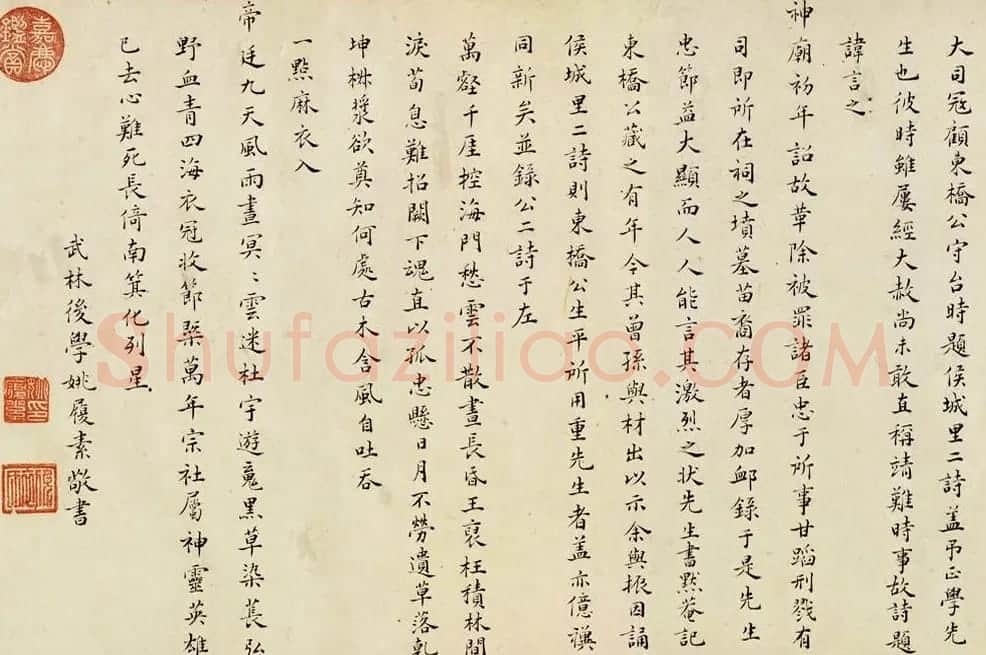 大司寇顧東橋公守台時題侯城里二詩蓋弔正學先
生也彼時雖屢經大赦尚未敢直稱靖難時事故詩題
諱言之
神廟初年詔故革除被罪諸臣忠于所事甘蹈刑戮有
司即所在祠之墳墓苗裔存者厚加䘏錄于是先生
忠節益大顯而人人能言其激烈之狀先生書默菴記
東橋公藏之有年今其曾孫與材出以示余與振因誦
侯城里二詩則東橋公生平所用重先生者蓋亦億禩
同新矣並錄公二詩于左
萬壑千厓控海門愁雲不散晝長昏王裒枉積林間
淚荀息難招闕下魂直以孤忠懸日月不勞遺草落乾
坤椒漿欲奠知何處古木含風自吐吞
一點麻衣入
帝廷九天風雨晝冥〻雲迷杜宇遊䰟黑草染萇弘
野血青四海衣冠收節槩萬年宗社屬神靈英雄
已去心難死長倚南箕化列星
武林後學姚履素敬書
Shufaziliao.COM